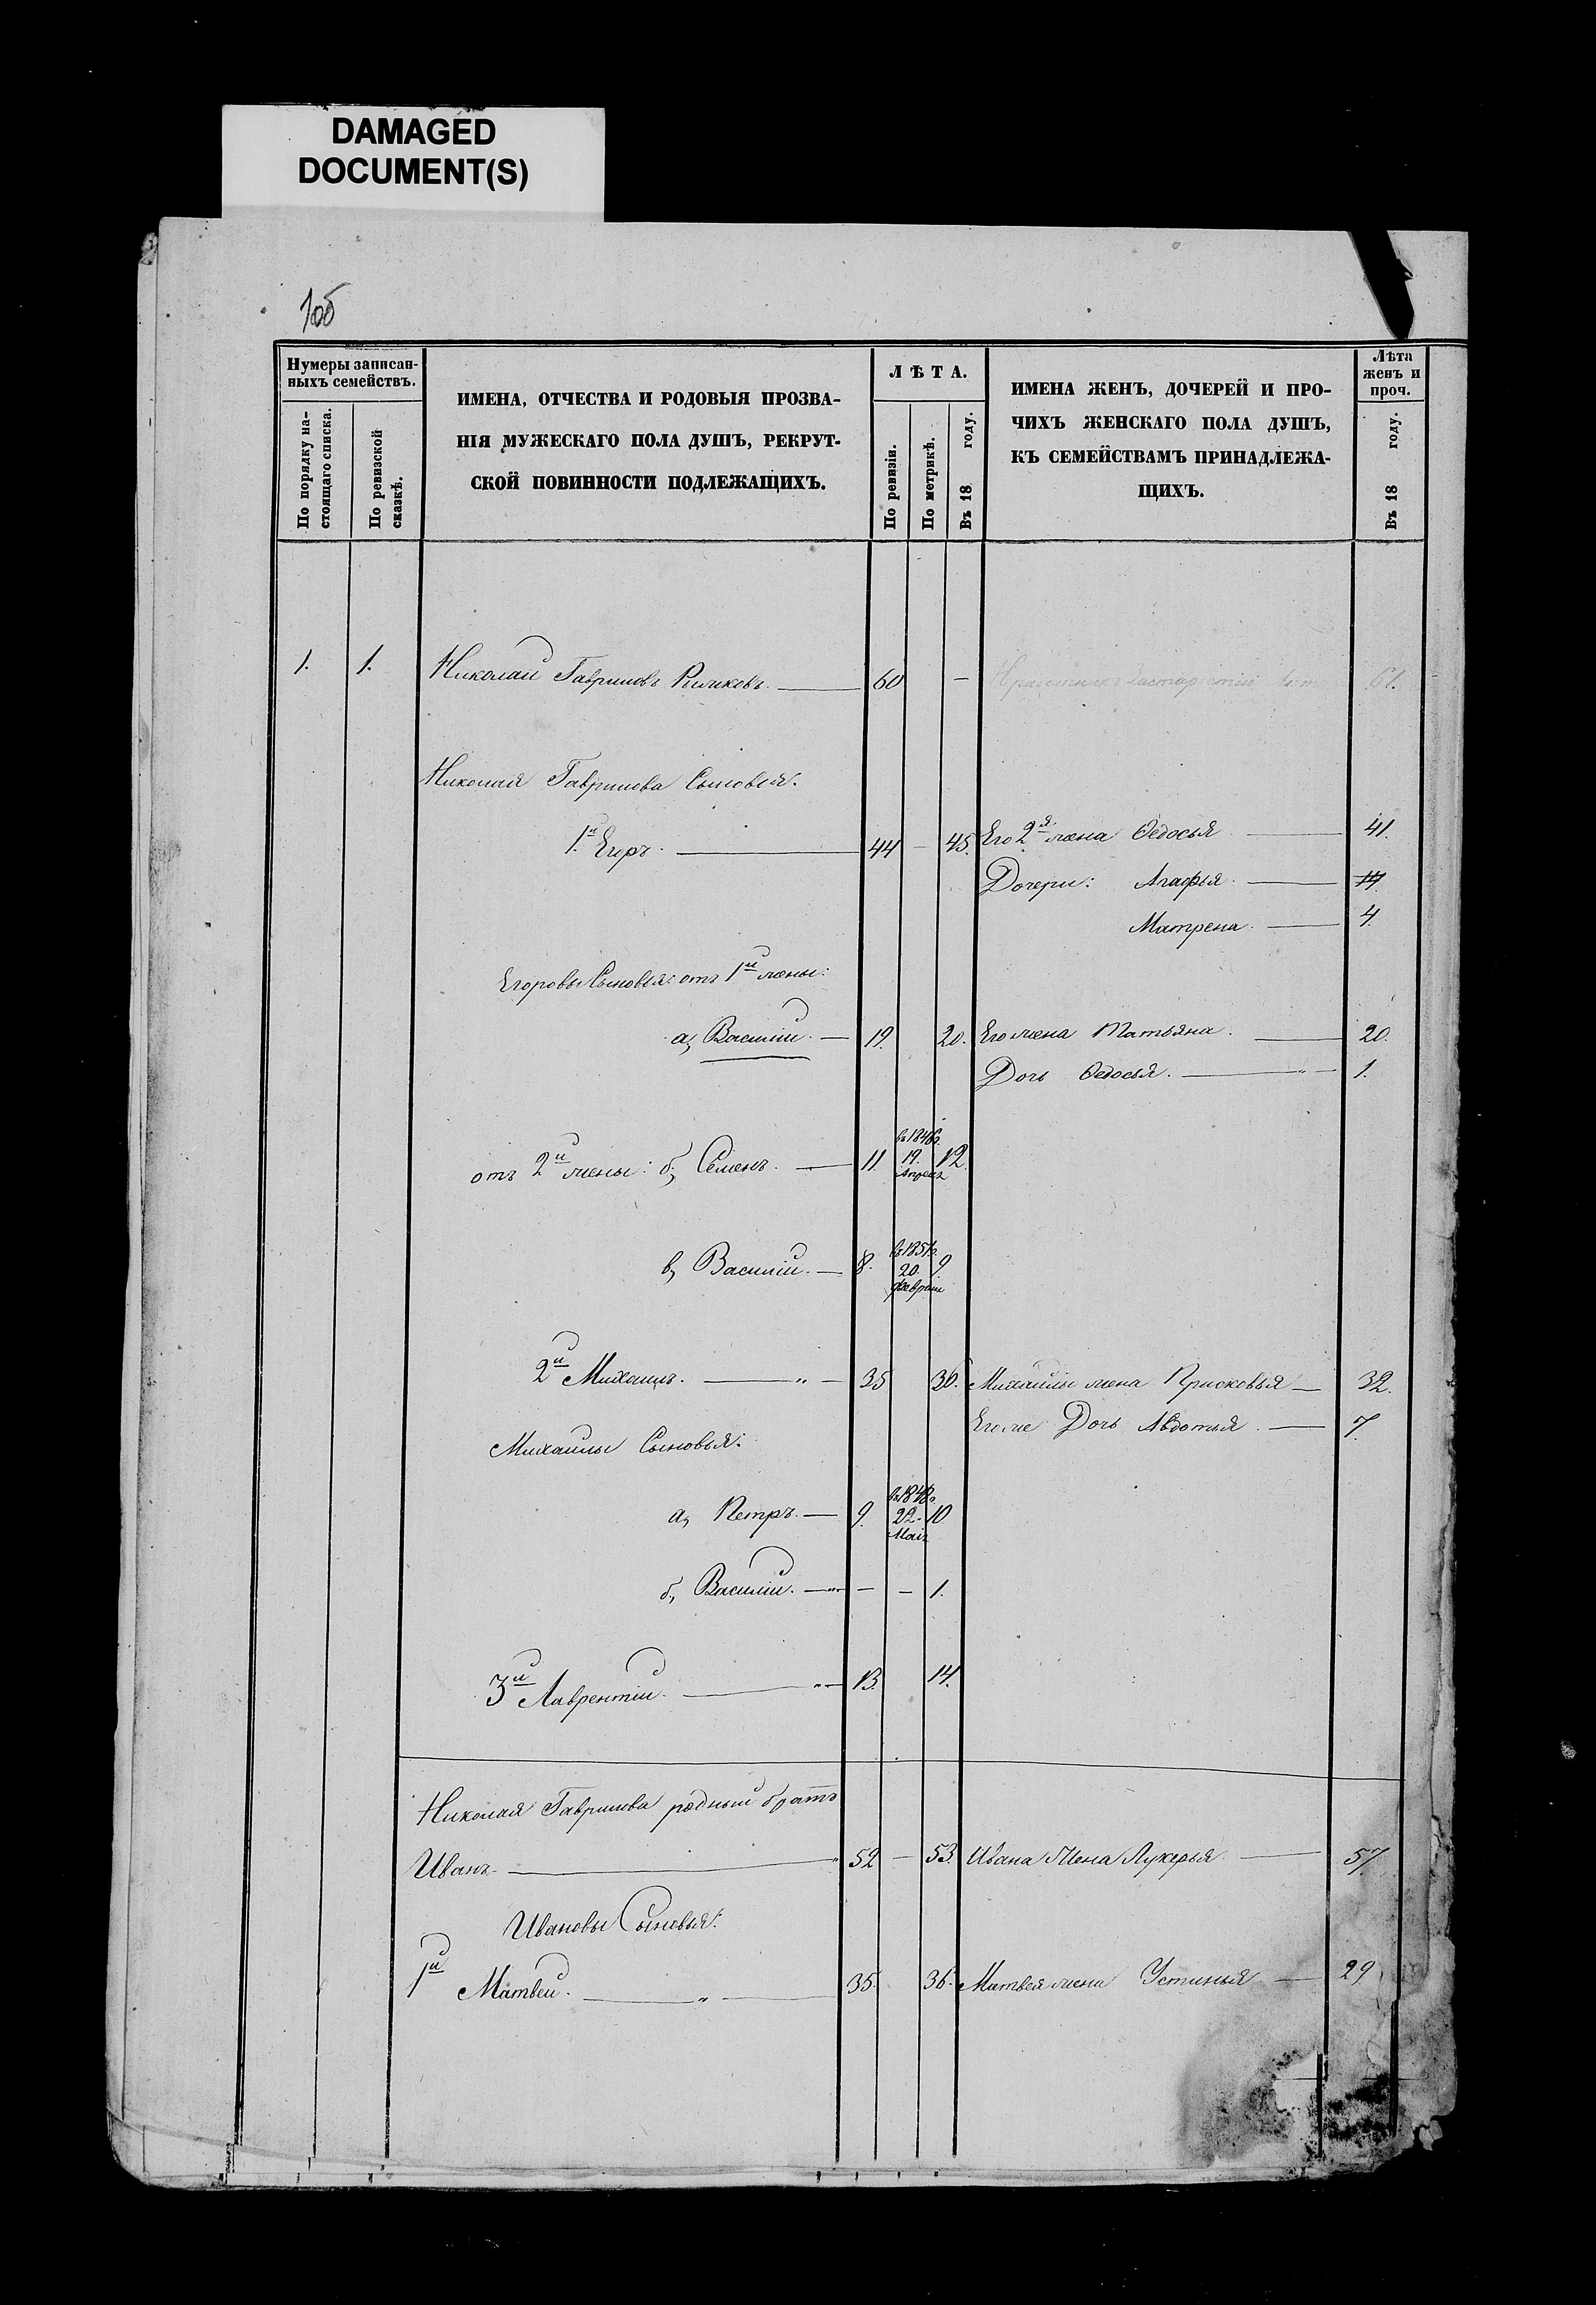 DAMAGED
DOCUMENT(S)
1об
Нумеры записан-
ныхъ семействъ.
По порядку на-
стоящаго списка.
По ревизской
сказкѣ.
ИМЕНА, ОТЧЕСТВА И РОДОВЫЯ ПРОЗВА-
НІЯ МУЖЕСКАГО ПОЛА ДУШЪ, РЕКРУТ-
СКОЙ ПОВИННОСТИ ПОДЛЕЖАЩИХЪ.
ЛѢТА.
По ревизіи.
По метрикѣ.
Въ 18 году.
ИМЕНА ЖЕНЪ, ДОЧЕРЕЙ И ПРО-
ЧИХЪ ЖЕНСКАГО ПОЛА ДУШЪ,
КЪ СЕМЕЙСТВАМЪ ПРИНАДЛЕЖА-
ЩИХЪ.
Лѣта
женъ и
проч.
Въ 18 году.
1. 1. Николай Гавриловъ 60 — 61.
Николая Гаврилова Сыновья:
1й Егоръ. 44 — 45. Его 2я жена Ѳедосья 41.
Дочери: Агафья 17.
Матрена 4.
Егоровы Сыновья: отъ 1й жены:
а, Василій. 19. 20. Его жена Татьяна. 20.
Дочь Ѳедосья. 1.
отъ 2й жены: б, Семенъ. 11. въ 1846г. 19. Апреля 12.
в, Василій. 8. въ 1851г. 20. февраля 9
2й Михаилъ. 35 36. Михаилы жена Прасковья 32.
Его же Дочь Авдотья. 7.
Михаилы Сыновья:
а, Петръ. 9. въ 1848г. 22. Маія 10
б, Василій. — — 1.
3й Лаврентій. 13. 14.
Николая Гаврилова родный братъ
Иванъ. 52 — 53. Ивана Жена Лукерья 57.
Ивановы Сыновья:
1й Матвей. 35. 36. Матвея жена Устинья 29.